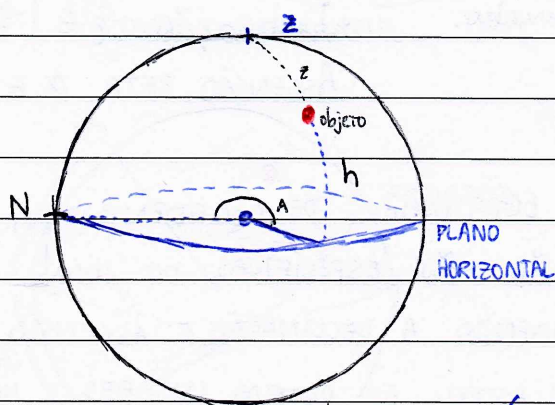 Z
z
objeto
h
N
A
PLANO
HORIZONTAL